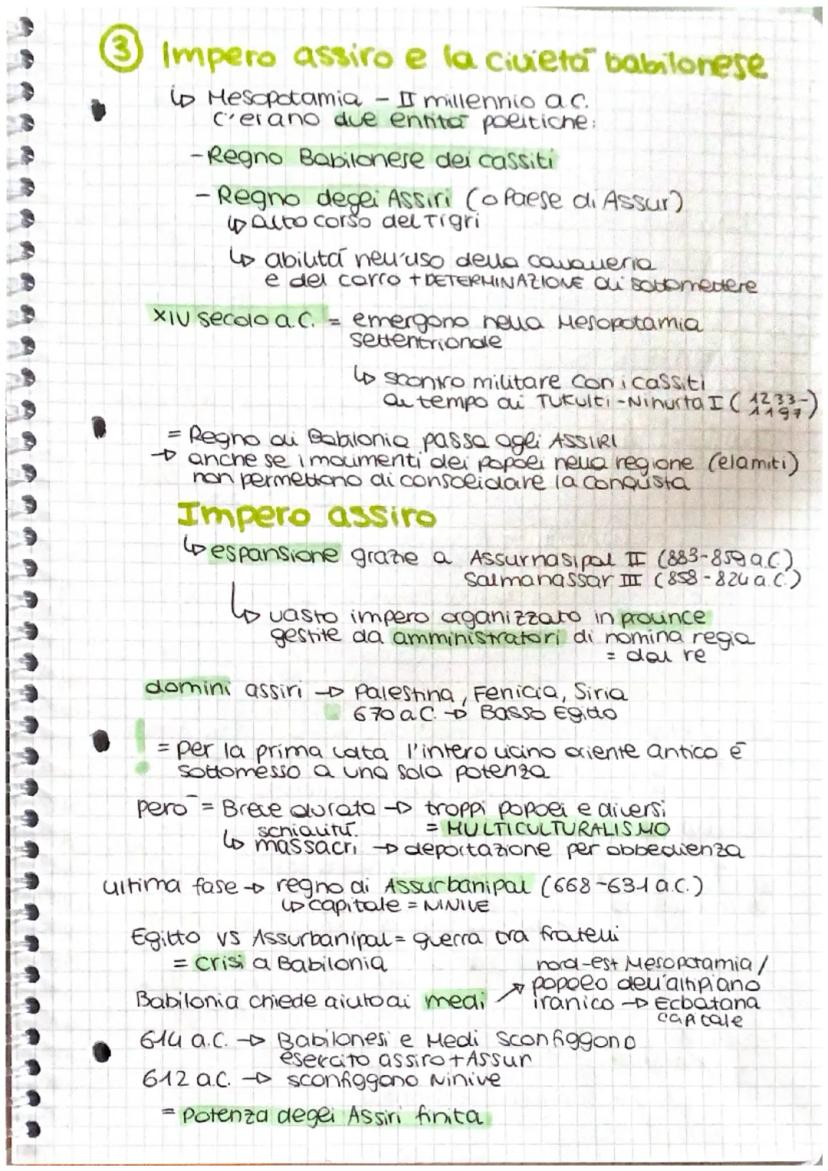 ③ Impero assiro e la civiltà babilonese
↳ Mesopotamia - II millennio a.C.
c'erano due entità politiche:
- Regno Babilonese dei cassiti
- Regno degli Assiri (o Paese di Assur)
↳ alto corso del Tigri
↳ abilità nell'uso della cavalleria
e del carro + DETERMINAZIONE di sottomettere
XIV secolo a.C. = emergono nella Mesopotamia
settentrionale
↳ scontro militare con i cassiti
al tempo di Tukulti-Ninurta I (1233-
1197)
= Regno di Babilonia passa agli ASSIRI
→ anche se i movimenti dei popoli nella regione (elamiti)
non permettono di consolidare la conquista
Impero assiro
↳ espansione grazie a Assurnasipal II (883-859 a.C.)
Salmanassar III (858-824 a.C.)
↳ vasto impero organizzato in province
gestite da amministratori di nomina regia
= dal re
domini assiri → Palestina, Fenicia, Siria
670 a.C. → Basso Egitto
! = per la prima volta l'intero vicino oriente antico è
sottomesso a una sola potenza
però = Breve durata → troppi popoli e diversi
schiavitù = MULTICULTURALISMO
↳ massacri → deportazione per obbedienza
ultima fase → regno di Assurbanipal (668-631 a.C.)
↳ capitale = NINIVE
Egitto vs Assurbanipal = guerra tra fratelli
= crisi a Babilonia
nord-est Mesopotamia/
Babilonia chiede aiuto ai medi ↗ popolo dell'altipiano
iranico → Ecbatana
capitale
614 a.C. → Babilonesi e Medi sconfiggono
esercito assiro + Assur
612 a.C. → sconfiggono Ninive
= potenza degli Assiri finita